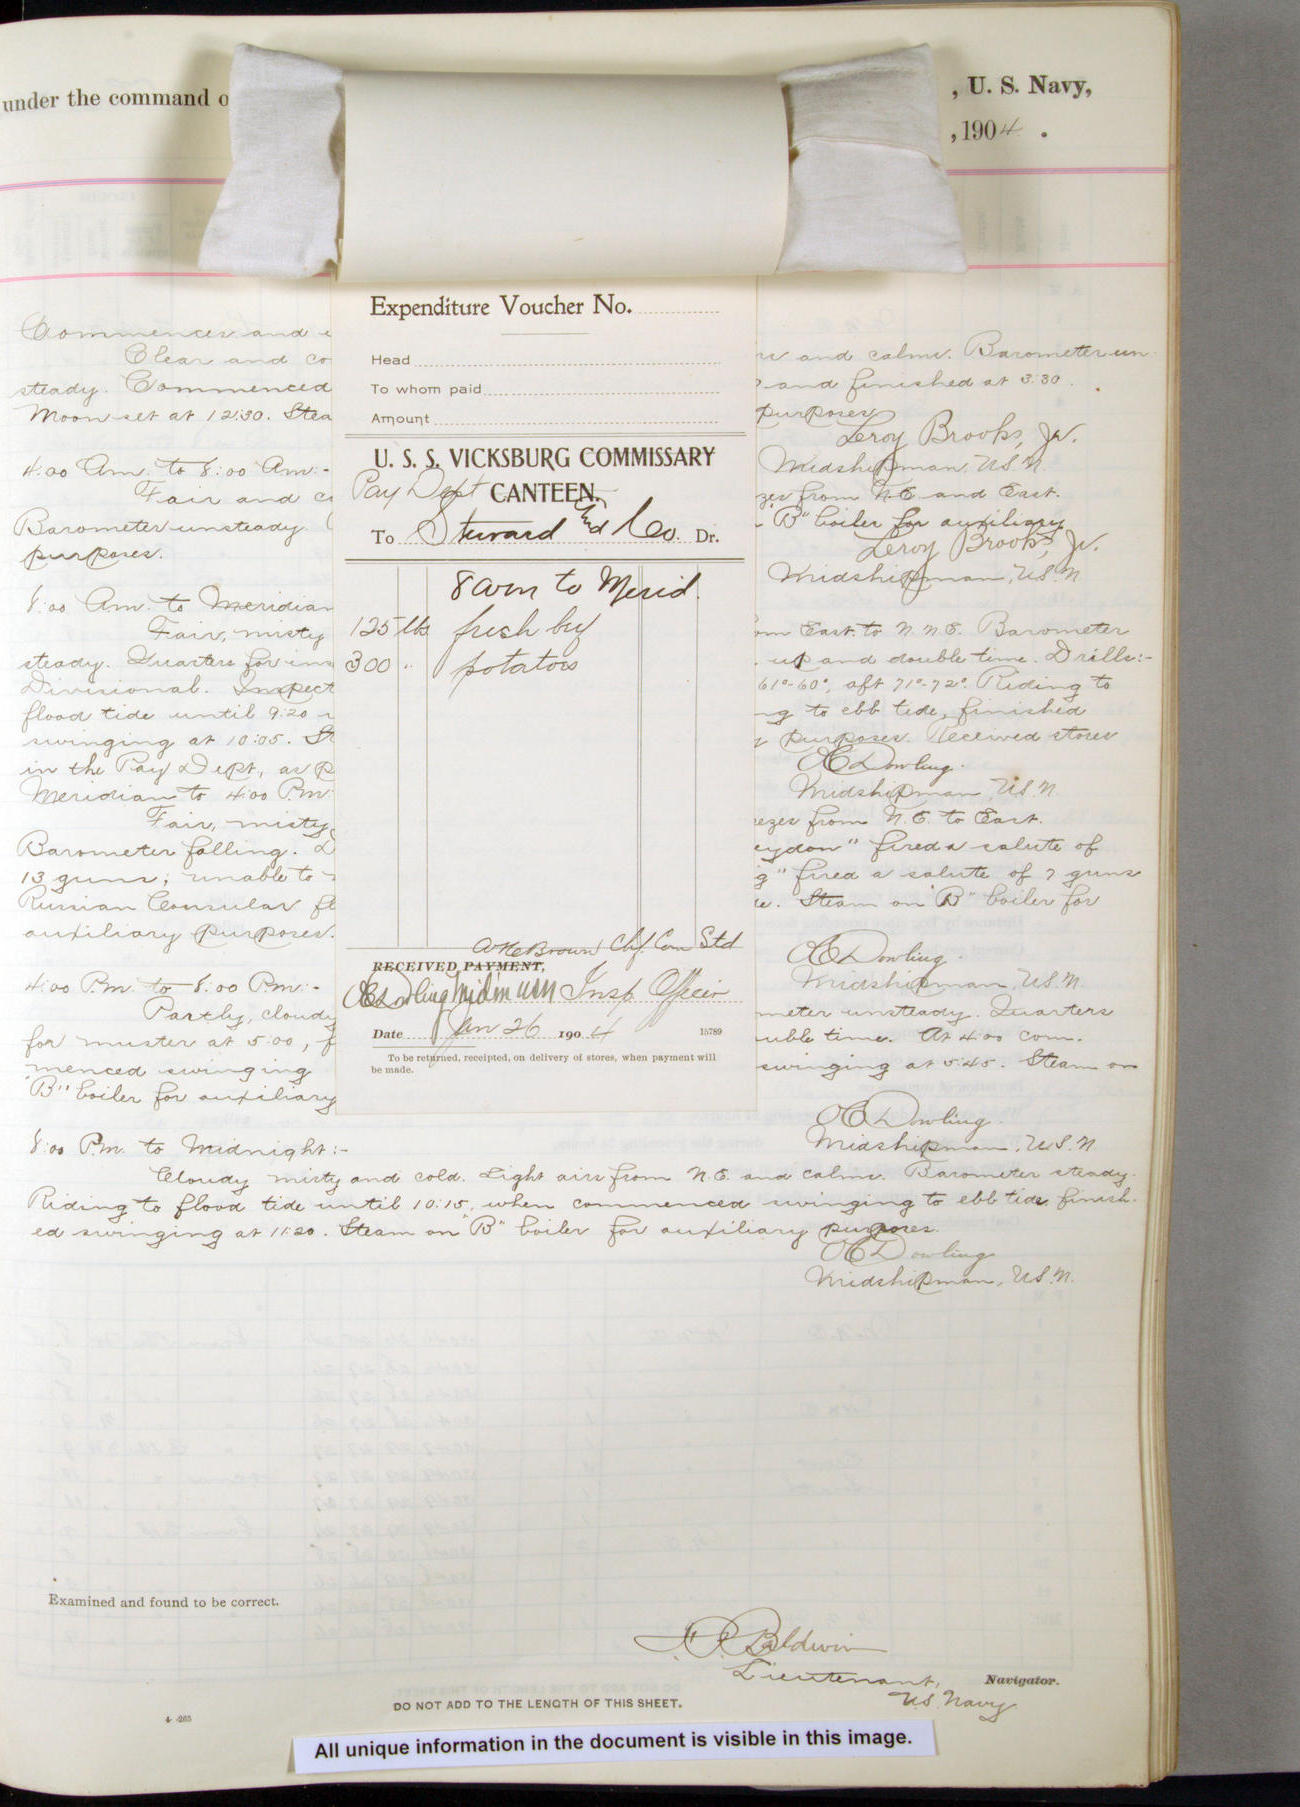 under the command o
, U. S. Navy,
, 1904 .
Commences and
Clear and co
rs and calms. Barometer un
steady. Commenced
and finished at 3:30 .
Moon set at 12:30. Stea
purposes
Leroy Brooks, Jr.
Midshipman, U.S.N.
4:00 Am. to 8:00 Am:-
Fair and c
zes from N.E and East.
Barometer unsteady
"B" boiler for auxiliary
purposes.
Leroy Brooks, Jr.
Midshipman, U.S.N
8:00 Am. to Meridian
Fair, misty
om East to N.N.E. Barometer
steady. Quarters for ins
up and double time. Drills:-
Divisional. Inspect
61°-60°, aft 71°-72°. Riding to
flood tide until 9:20
ng to ebb tide, finished
swinging at 10:05. St
y purposes. Received stores
in the Pay Dept., as p
OCDowling.
Midshipman, U.S.N.
Meridian to 4:00 P.m:
Fair, misty
ezes from N.E. to East.
Barometer falling.
eydon" fired a salute of
13 guns; unable to
g" fired a salute of 7 guns
Russian Consular fl
e. Steam on "B" boiler for
auxiliary purposes.
OCDowling.
Midshipman, U.S.N.
4:00 P.m. to 8:00 P.m:-
Partly, cloudy
meter unsteady. Quarters
for muster at 5:00, f
uble time. At 4:00 com.
menced swinging
swinging at 5:45. Steam on
"B" boiler for auxiliary
OCDowling.
Midshipman, U.S.N
8:00 P.m. to Midnight:-
Cloudy misty and cold. Light airs from N.E. and calms. Barometer steady.
Riding to flood tide until 10:15, when commenced swinging to ebb tide finish-
ed swinging at 11:20. Steam on "B" boiler for auxiliary purposes.
OCDowling
Midshipman, U.S.N.
Expenditure Voucher No.
Head
To whom paid
Amount
U. S. S. VICKSBURG COMMISSARY
Pay Dept CANTEEN.
To Steward and Co. Dr.
8 am to Merid.
125 lbs fresh beef
300 " potatoes
Brown Chf. Com Std
RECEIVED PAYMENT,
OCDowling Mid'n USN Insp. Officer
Date Jan 26 1904
15789
To be returned, receipted, on delivery of stores, when payment will
be made.
Examined and found to be correct.
Baldwin
Lieutenant,
U.S. Navy
Navigator.
DO NOT ADD TO THE LENGTH OF THIS SHEET.
All unique information in the document is visible in this image.